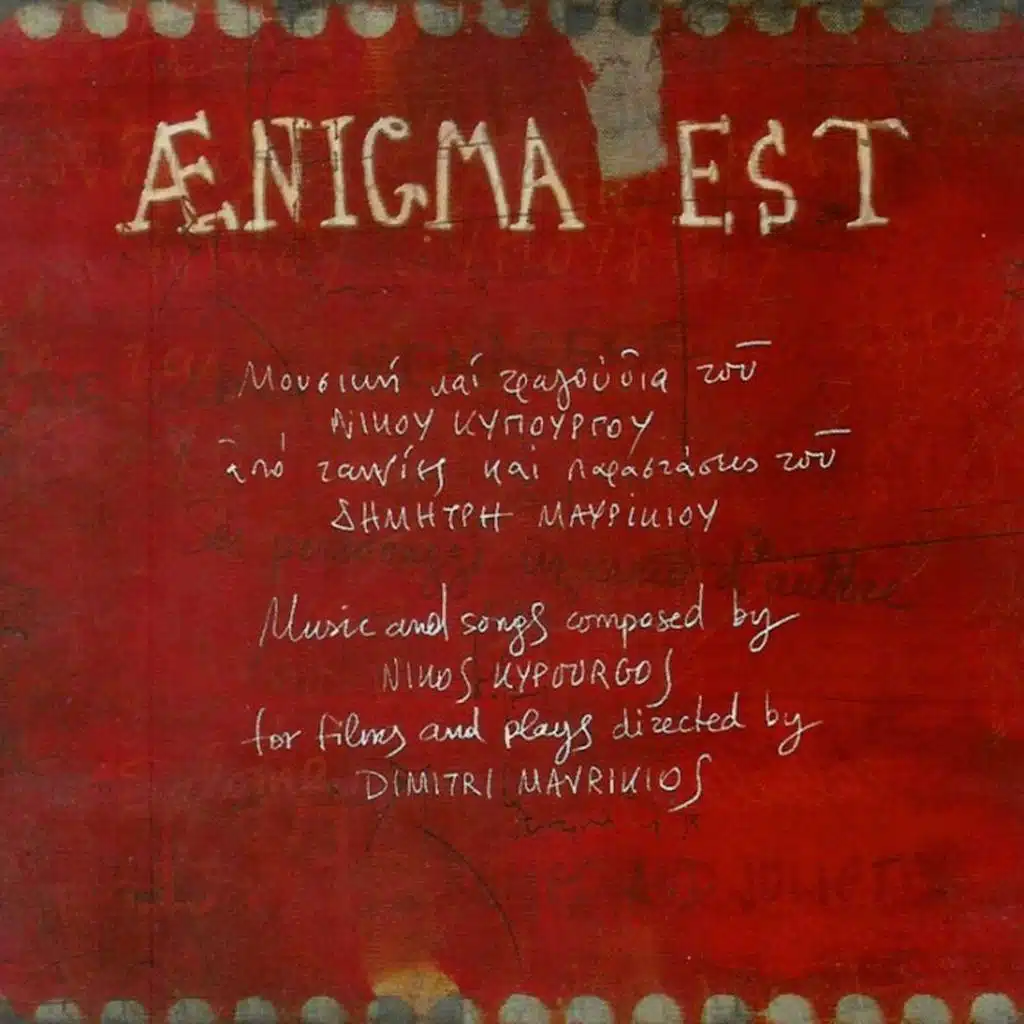 ÆNIGMA EST
Μουσική καί τραγούδια τοῦ
ΝΙΚΟΥ ΚΥΠΟΥΡΓΟΥ
ἀπό ταινίες καί παραστάσεις τοῦ
ΔΗΜΗΤΡΗ ΜΑΥΡΙΚΙΟΥ
Music and songs composed by
NIKOS KYPOURGOS
for films and plays directed by
DIMITRI MAVRIKIOS